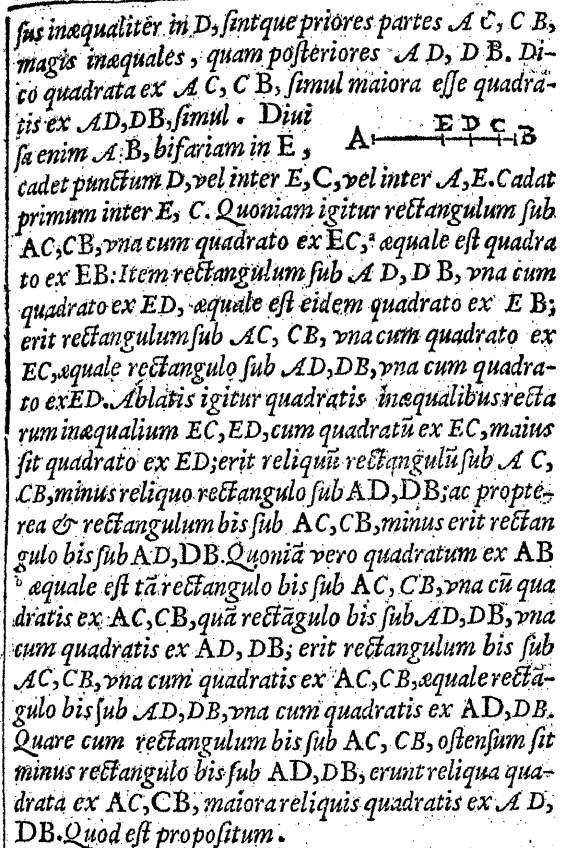 ſus inæqualiter in D, ſintque priores partes A C, C B,
magis inæquales, quam poſteriores A D, D B. Di-
co quadrata ex A C, C B, ſimul maiora eſſe quadra-
tis ex AD, DB, ſimul. Diui
ſa enim A B, bifariam in E,
A E D C B
cadet punctum D, vel inter E, C, vel inter A, E. Cadat
primum inter E, C. Quoniam igitur rectangulum ſub
AC, CB, vna cum quadrato ex EC, ᵃ æquale eſt quadra
to ex EB: Item rectangulum ſub A D, D B, vna cum
quadrato ex ED, æquale eſt eidem quadrato ex E B;
erit rectangulum ſub AC, CB, vna cum quadrato ex
EC, æquale rectangulo ſub AD, DB, vna cum quadra-
to ex ED. Ablatis igitur quadratis inæqualibus recta
rum inæqualium EC, ED, cum quadratū ex EC, maius
ſit quadrato ex ED; erit reliquū rectangulū ſub A C,
CB, minus reliquo rectangulo ſub AD, DB; ac propte-
rea & rectangulum bis ſub AC, CB, minus erit rectan
gulo bis ſub AD, DB. Quoniā vero quadratum ex AB
ᵇ æquale eſt tā rectangulo bis ſub AC, CB, vna cū qua
dratis ex AC, CB, quā rectāgulo bis ſub AD, DB, vna
cum quadratis ex AD, DB; erit rectangulum bis ſub
AC, CB, vna cum quadratis ex AC, CB, æquale rectā-
gulo bis ſub AD, DB, vna cum quadratis ex AD, DB.
Quare cum rectangulum bis ſub AC, CB, oſtenſum ſit
minus rectangulo bis ſub AD, DB, erunt reliqua qua-
drata ex AC, CB, maiora reliquis quadratis ex A D,
DB. Quod eſt propoſitum.